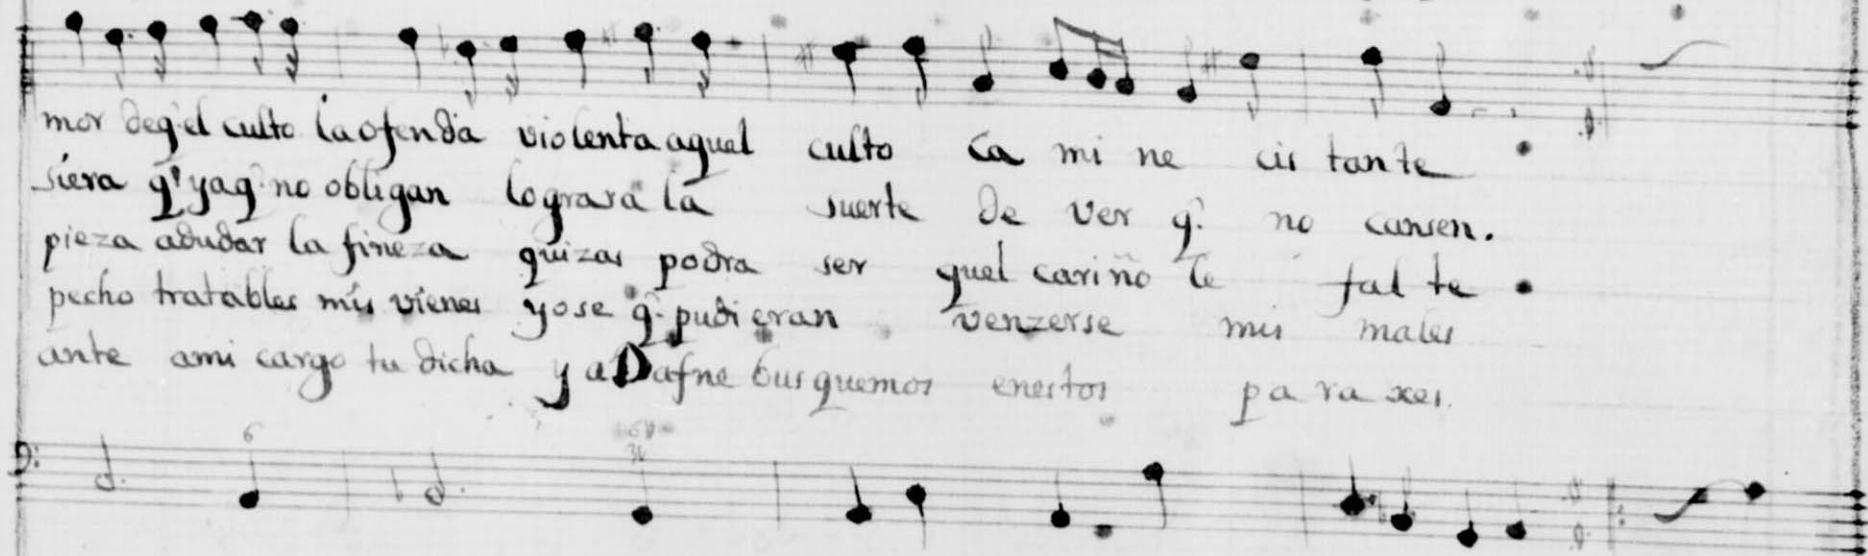 mor deq̃.el culto la ofenda violenta aquel culto ca mi ne cis tante
siera q̃ ya q̃ no obligan lograra la suerte de ver q̃. no cansen.
pieza adudar la fineza quizas podra ser quel cariño le fal te
pecho tratables mis vienes yose q̃ pudieran venzerse mis males
ante ami cargo tu dicha y a Dafne busquemos enestos pa ra xes.
6